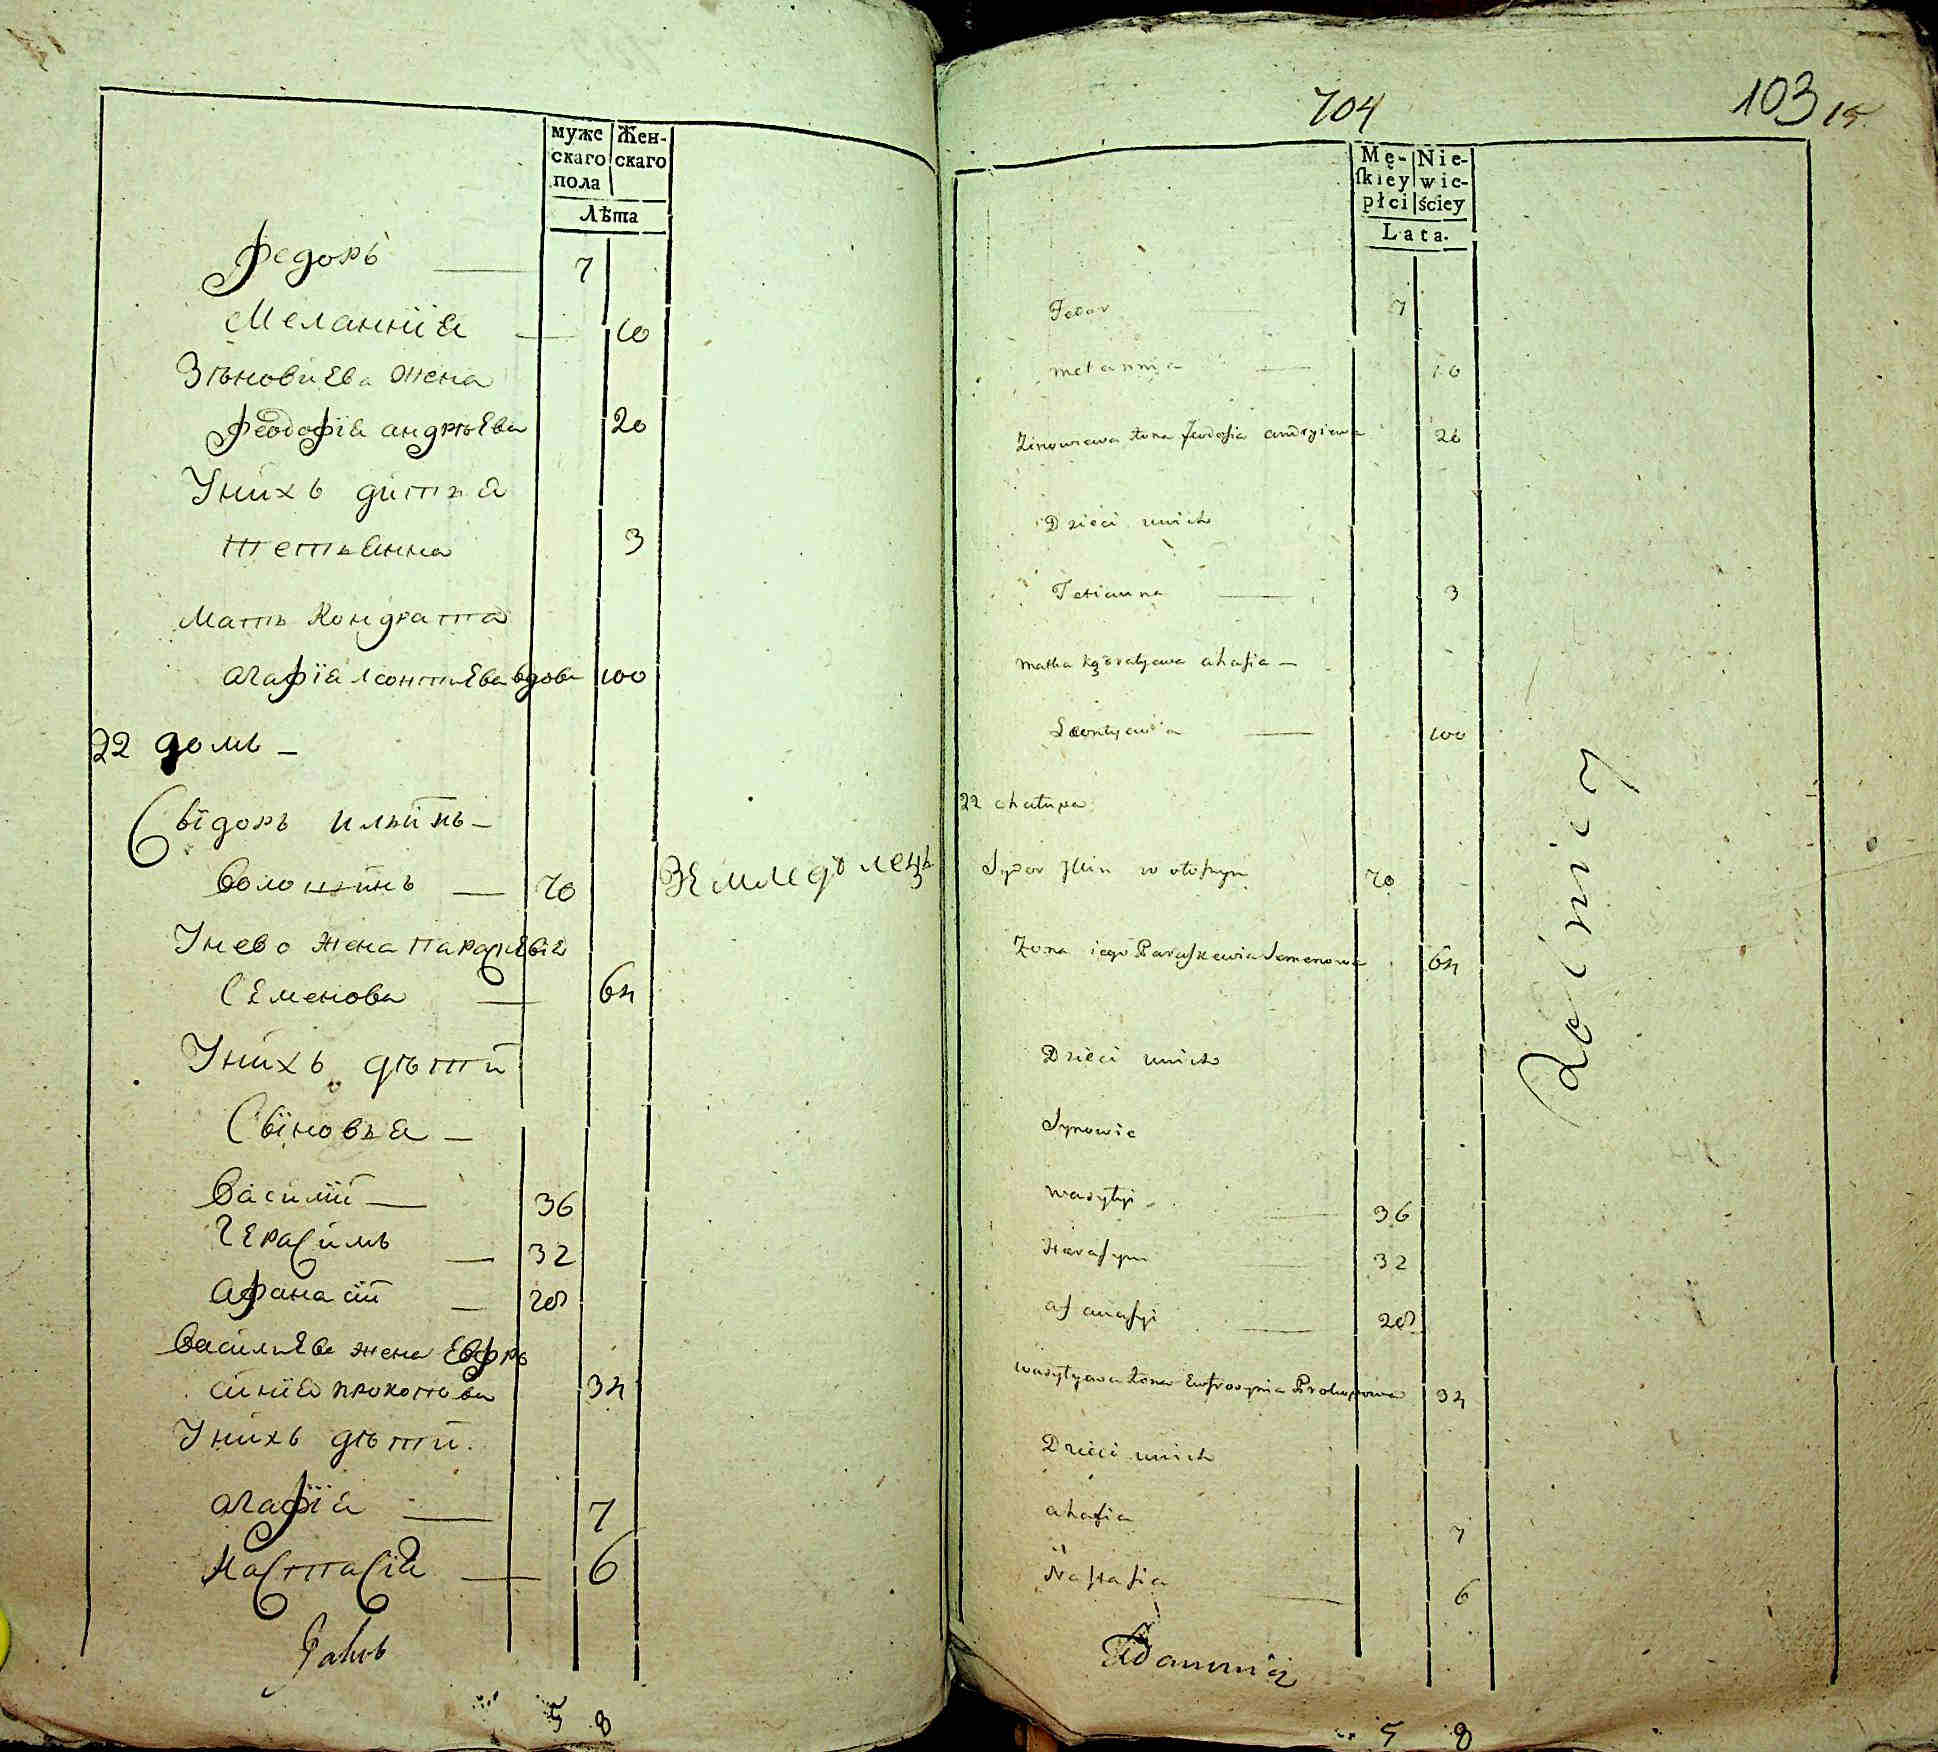 муже Жен-
скаго скаго
пола
Лѣта
Федоръ — 7
Меланнїя — 10
Зѣновиева жена
Феодосїя андрѣева 20
Унихъ дитья
тетьянна 3
Мать Кондрата
агафїя леонтиева вдова 100
22 домъ —
Свідоръ Ильинъ —
Волошинъ — 70 Земледѣлецъ
Унево жена параскевїя
Семенова — 64
Унихъ дѣти
Сыновья —
Василий — 36
Герасимъ — 32
Афанасий — 28
Василиева жена Евфро
синия прокопова 34
Унихъ дѣти.
агафїя — 7
Настасїя — 6
5 8
704
103 15
Mę- Nie-
ſkiey wie-
płci ściey
Lata.
Fedor — 7
melannia — 10
Zinowiewa żona Feodosia andryiewa 20
Dzieci unich
Tetianna — 3
Matka Kądratyewa ahafia —
Leontyewa — 100
22 chałupa
Sydor Jllin wołoſzyn 70
Żona iego Paraſkewia Semenowa 64
Rolnicy
Dzieci unich
Synowie
wasylyi — 36
Haraſym — 32
afanaſyi — 28
wasylyewa żona Eufrosynia Prokopowa 34
Dzieci unich
ahafia 7
Naſtaſia — 6
5 8